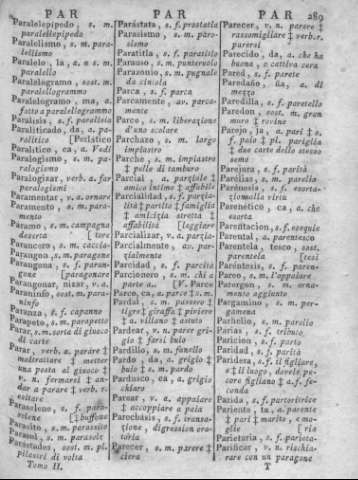 PAR PAR PAR 289
Paralelepipedo, s. m.
paralellepipedo
Paralelismo, s. m. paralellismo
Paralelo, la, a. e s. m.
paralello
Paralelogramo, sost. m.
parallelogrammo
Paralelogramo, ma, a.
fatto a parallelogrammo
Paralisis, s. f. paralisia
Paraliticado, da, a. paralitico
Paralitico, ca, a. Vedi
Paralogismo, s. m. paralogismo
Paralogizar, verb. a. far
paralogismi
Paramentar, v. a. ornare
Paramento, s. m. paramento
Paramo, s. m. campagna
deserta
Parancero, s. m. caccia-
Parangon, s. m. paragone
Parangona, s. f. paragone
Parangonar, nizar, v. a.
Paraninfo, sost. m. paraninfo
Paranza, s. f. capanno
Parapeto, s. m. parapetto
Parar, s. m. sorta di giuoco
di carte
Parar, verb. a. parare ‡
‡ metter
una posta al giuoco ‡
v. n. fermarsi ‡ andar a parare ‡ verb. r.
Paraselene, s. f.
Parasito, s. m. parassito
Parasol, s. m. parasole
Tomo II.
Parástata, s. f. prostatta
Parasismo, s. m. parosismo
Paratitla, s. f. paratitla
Parauso, s. m. punteruolo
Parazonio, s. m. pugnale
da cintola
Parca, s. f. parca
Parcamente, av. parcamente
Parce, s. m. liberazione
d'uno scolare
Parchazo, s. m. largo
impiastro
Parche, s. m. impiastro
‡ pelle di tamburo
Parcial, a. parziale ‡
amico intimo ‡ affabile
Parcialidad, s. f. parzialità ‡ partito ‡ famiglia
‡ amicizia stretta ‡
affabilità
Parcializar, v. a. parzia-
Parcialmente, av. parzialmente
Parcidad, s. f. parcità
Parcionero, s. m. chi a
parte a.. [V. Parco
Parco, ca, a. parco ‡ s. m.
Pardal, s. m. passero ‡
tigre ‡ giraffa ‡ piviere
‡ a. villano ‡ astuto
Pardear, v. n. parer grigio ‡ farsi buio
Pardillo, s. m. fanello
Pardo, da, a. grigio ‡
buio ‡ s. m. pardo
Pardusco, ca, a. grigio
chiaro
Parear, v. a. appaiare
‡ accoppiare a paia
Parechasis, s. f. transazione, digression oratoria
Parecer, s. m. parere ‡
ciera
Parecer, v. n. parere ‡
rassomigliare ‡ verb. r.
parersi
Parecido, da, a. che ha
buona, o cattiva cera
Pared, s. f. parete
Paredaño, ña, a. di
mezzo
Paredilla, s. f. paretello
Paredon, sost. m. gran
muro ‡ rovine
Parejo, ja, a. pari ‡ s.
f. paio ‡ pl. pariglia
‡ due carte dello stesso
seme
Parejura, s. f. parità
Parélias, s. m. parelio
Parénesis, s. f. esortazioncella virtù
Parenético, ca, a. che
esorta
Parentacion, s. f. esequie
Parental, a. parentesco
Parentela, tesco, sost.
parentela
Paréntesis, s. f. paren-
Pareo, s. m. l'appaiare
Parergon, s. m. ornamento aggiunto
Pargamino, s. m. pergamena
Parhelio, s. m. parelio
Parias, s. f. tributo
Paricion, s. f. parto
Paridad, s. f. parità
Paridera, s. f. il figliare,
e 'l luogo, dovele pecore figliano ‡ a. f. feconda
Parida, s. f. partoritrice
Pariente, ta, a. parente
‡ pari ‡ marito, e moglie
Parietaria, s. f. parieta-
Parificar, v. n. rischiarare con un paragone
T